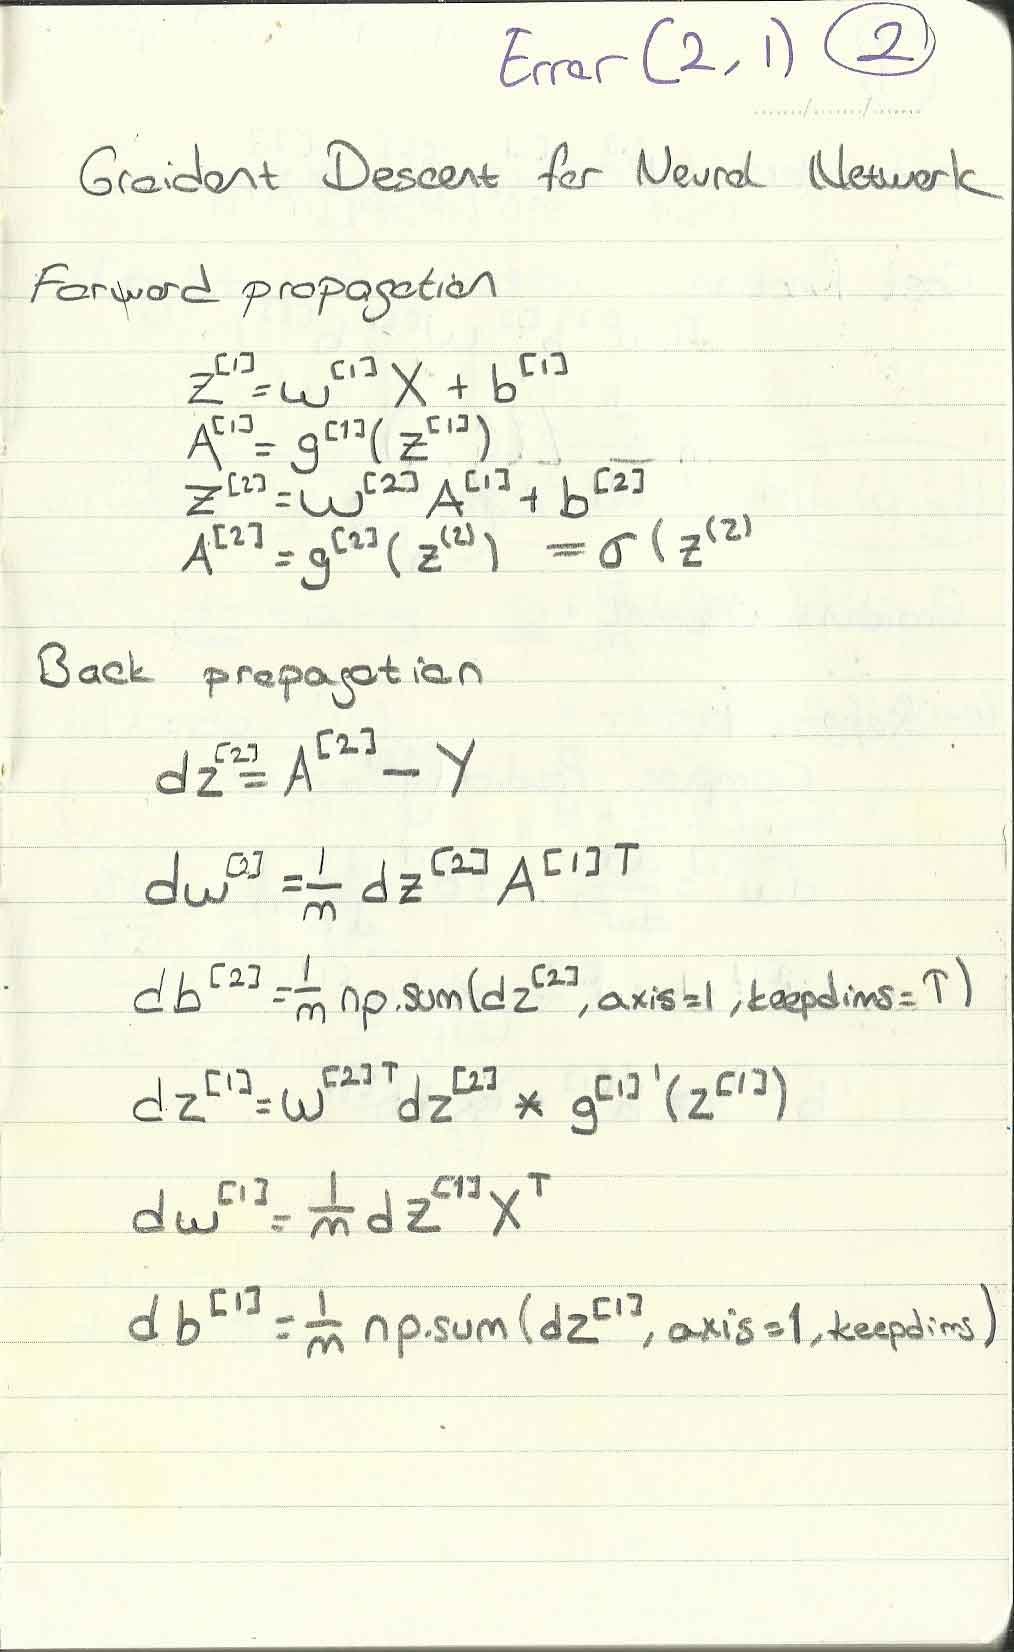 Error (2,1) 2
Graident Descent for Neural Network
Forward propagation
z^[1] = w^[1] X + b^[1]
A^[1] = g^[1](z^[1])
z^[2] = w^[2] A^[1] + b^[2]
A^[2] = g^[2](z^(2)) = σ(z^(2)
Back propagation
dz^[2] = A^[2] - Y
dw^[2] = 1/m dz^[2] A^[1]T
db^[2] = 1/m np.sum(dz^[2], axis=1, keepdims=T)
dz^[1] = w^[2]T dz^[2] * g^[1]'(z^[1])
dw^[1] = 1/m dz^[1] X^T
db^[1] = 1/m np.sum(dz^[1], axis=1, keepdims)